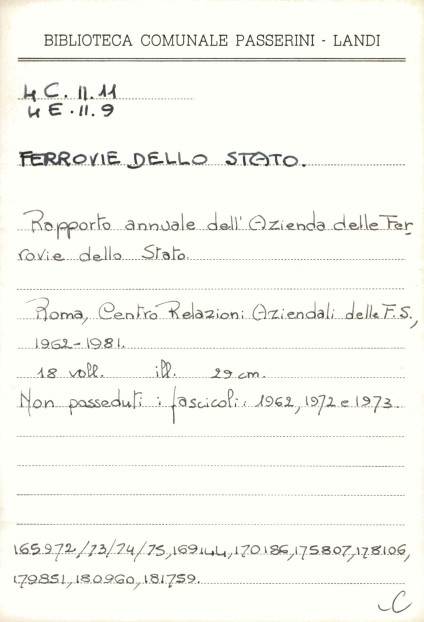 BIBLIOTECA COMUNALE PASSERINI - LANDI
4 C. II. 11
4 E. II. 9
FERROVIE DELLO STATO.
Rapporto annuale dell'Azienda delle Fer
rovie dello Stato.
Roma, Centro Relazioni Aziendali delle F.S.,
1962-1981.
18 voll. ill. 29 cm.
Non posseduti i fascicoli: 1962, 1972 e 1973.
165972/73/74/75, 169144, 170186, 175807, 178106,
179851, 180960, 181759.
C